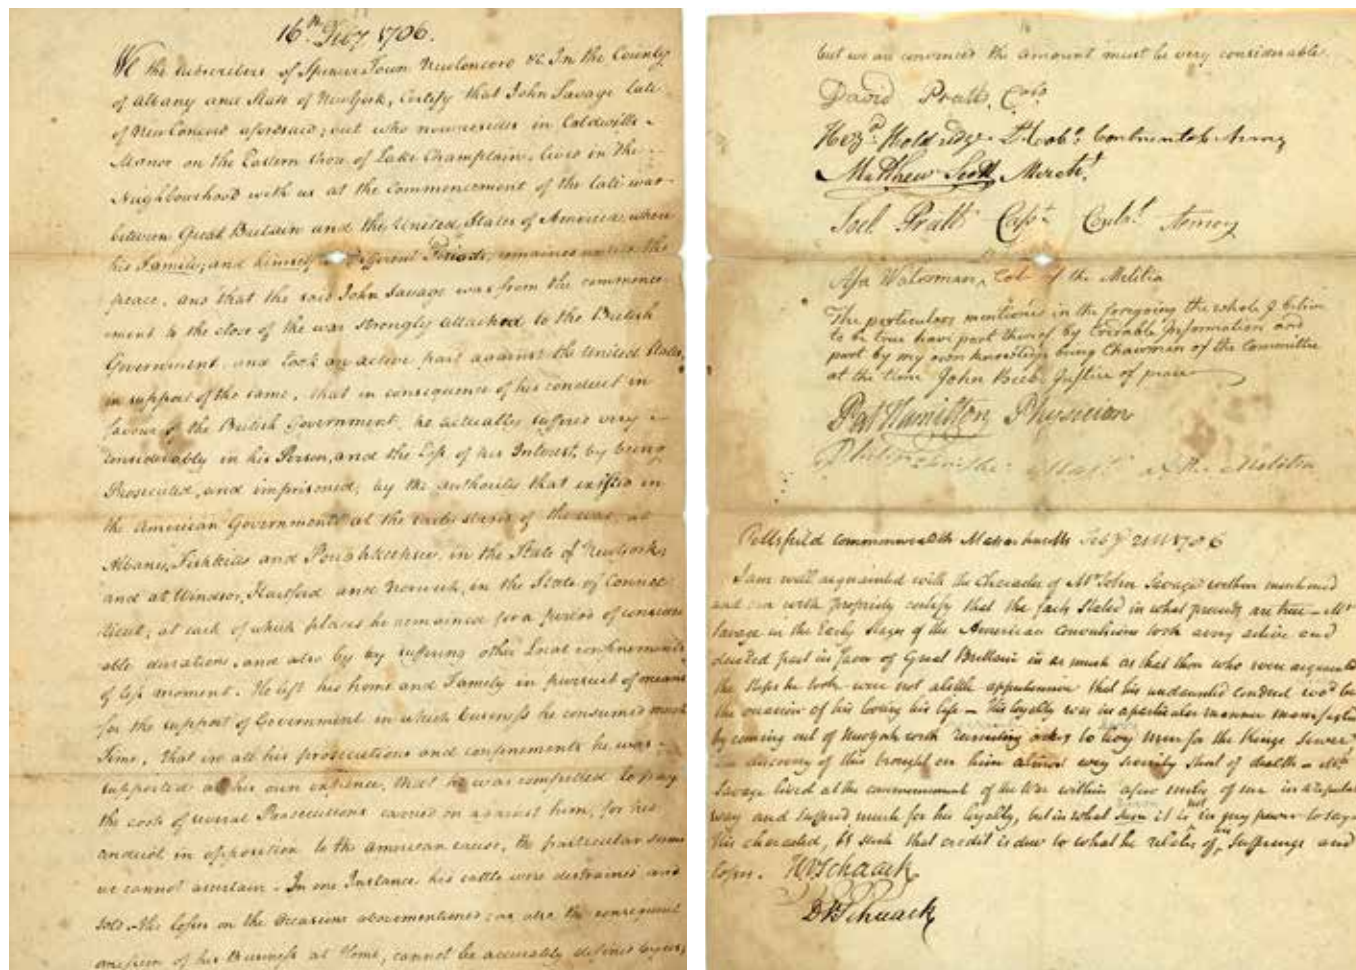 16th Feby 1786.
We the subscribers of Spencer Town Newconcord &c In the County
of Albany and State of NewYork, Certify that John Savage late
of New Concord aforesaid; but who now resides in Caldwells
Manor on the Eastern Shore of Lake Champlain, lived in the
Neighbourhood with us at the Commencement of the late war
between Great Britain and the United States of America, when
his Family, and himself at different Periods, remained untill the
peace, and that the said John Savage was from the commence
ment to the close of the war strongly attached to the British
Government, and took an active part against the United States
in support of the same, that in consequence of his conduct in
favour of the British Government, he actually suffered very
considerably in his Person, and the Loss of his Interest, by being
Prosecuted, and imprisoned, by the authority that existed in
the American Governments at the early stages of the war, at
Albany, Fishkills and Poughkeepsie, in the State of Newyork,
and at Windsor, Hartford and Norwich, in the State of Connec
ticut, at each of which places he remained for a period of consider
able duration, and also by suffering other confinements
of less moment. He left his home and Family in pursuit of means
for the support of Government in which business he consumed much
Time, that in all his prosecutions and confinements he was
supported at his own expence, that he was compelled to pay
the costs of several Prosecutions carried on against him, for his
conduct in opposition to the American cause, the particular sums
we cannot ascertain. In one Instance his cattle were distrained and
sold. The losses on the occasions abovementioned, as also the consequent
omission of his Business at Home, cannot be accurately defined by us,
but we are convinced the amount must be very considerable.
David Pratt, Colo.
Hezd. Holdridge Lt Colo. Continental Army
Matthew Scott Mercht.
Joel Pratt Capt Contl. Army
Asa Waterman, Col of the Militia
The particulars mentioned in the foregoing the whole I believe
to be true have part thereof by Information and
part by my own knowledge being Chairman of the Committee
at the time John Beebe Justice of peace
Pat Hamilton Physician
Philip Majr of the Militia
Pittsfield commonwealth Massachusetts Feby 21st 1786
I am well acquainted with the Character of Mr. John Savage within mentioned
and can with propriety certify that the facts Stated in what precedes are true – Mr
Savage in the Early Stages of the American convulsions took a very active and
decided part in favor of Great Brittain in as much as that those who were acquainted
the steps he took were not a little apprehensive that his undaunted conduct wod be
the occasion of his losing his life – His loyalty was in a particular manner manifested
by coming out of Newyork with recruiting orders to levy men for the Kings Service,
discovery of this brought on him almost every severity short of death – Mr.
Savage lived at the commencement of the War within a few miles of me in a reputable
way and suffered much for his loyalty, but in what Sum it is not in my power to say
His character, is such that credit is due to what he relates of his Sufferings and
Losses. HVSchaack
DVSchaack